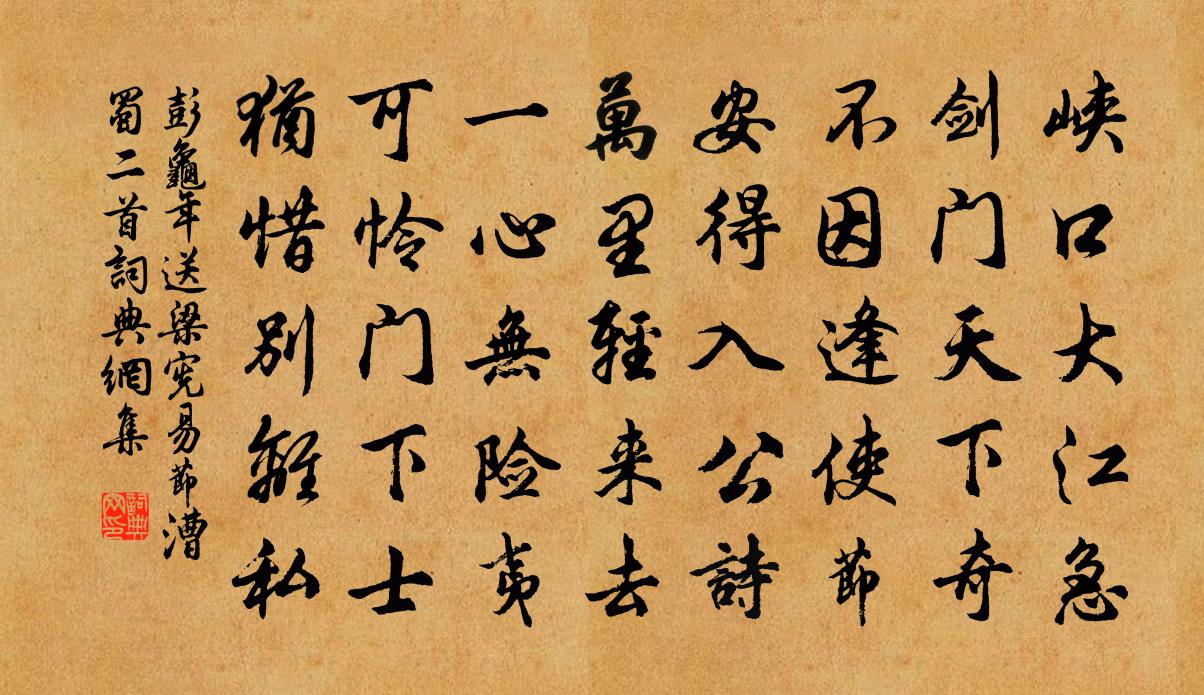 峡口大江急
剑门天下奇
不因逢使節
安得入公詩
萬里輕来去
一心無险夷
可怜门下士
猶惜别離私
彭龜年送梁宪易節漕
蜀二首詞典網集
詞典网印